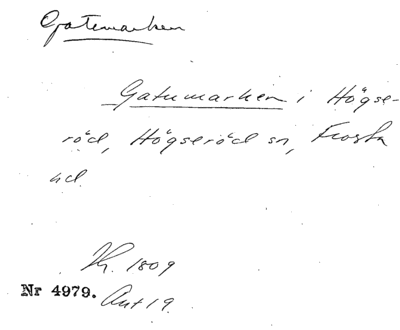 Gatemarken
Gatumarken i Högse-
röd, Högseröd sn, Frosta
hd.
1809
Nr 4979. Akt 19.